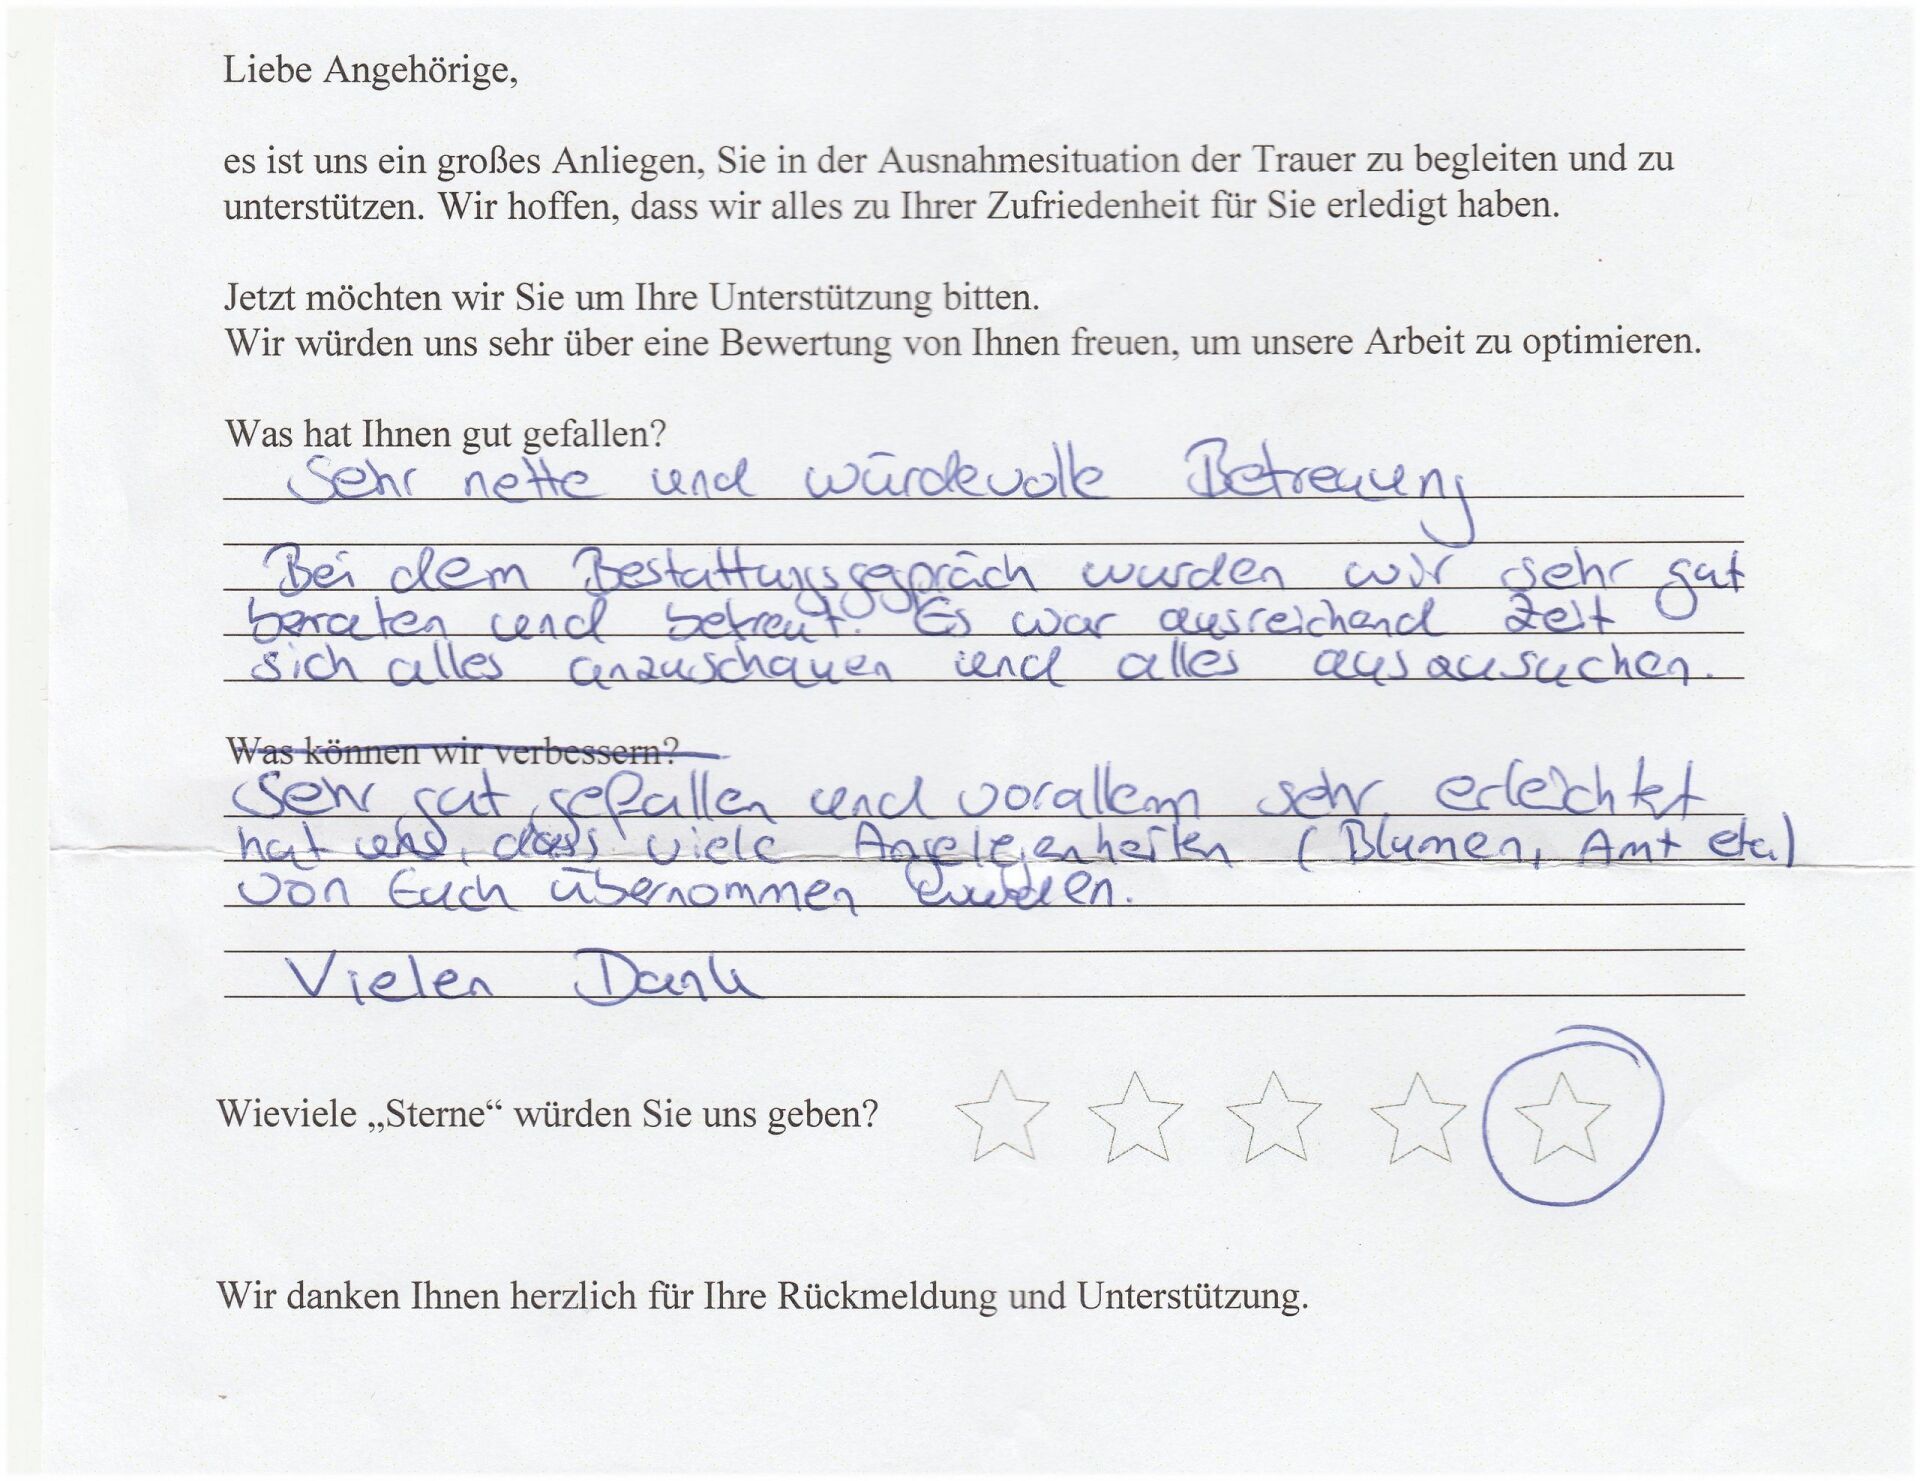 Liebe Angehörige,
es ist uns ein großes Anliegen, Sie in der Ausnahmesituation der Trauer zu begleiten und zu
unterstützen. Wir hoffen, dass wir alles zu Ihrer Zufriedenheit für Sie erledigt haben.
Jetzt möchten wir Sie um Ihre Unterstützung bitten.
Wir würden uns sehr über eine Bewertung von Ihnen freuen, um unsere Arbeit zu optimieren.
Was hat Ihnen gut gefallen?
Sehr nette und würdevolle Betreuung
Bei dem Bestattungsgespräch wurden wir sehr gut
beraten und betreut. Es war ausreichend Zeit
sich alles anzuschauen und alles auszusuchen.
Was können wir verbessern?
Sehr gut gefallen und vorallem sehr erleichtet
hat uns, dass viele Angelegenheiten (Blumen, Amt etc.)
von Euch übernommen wurden.
Vielen Dank
Wieviele „Sterne“ würden Sie uns geben?
Wir danken Ihnen herzlich für Ihre Rückmeldung und Unterstützung.